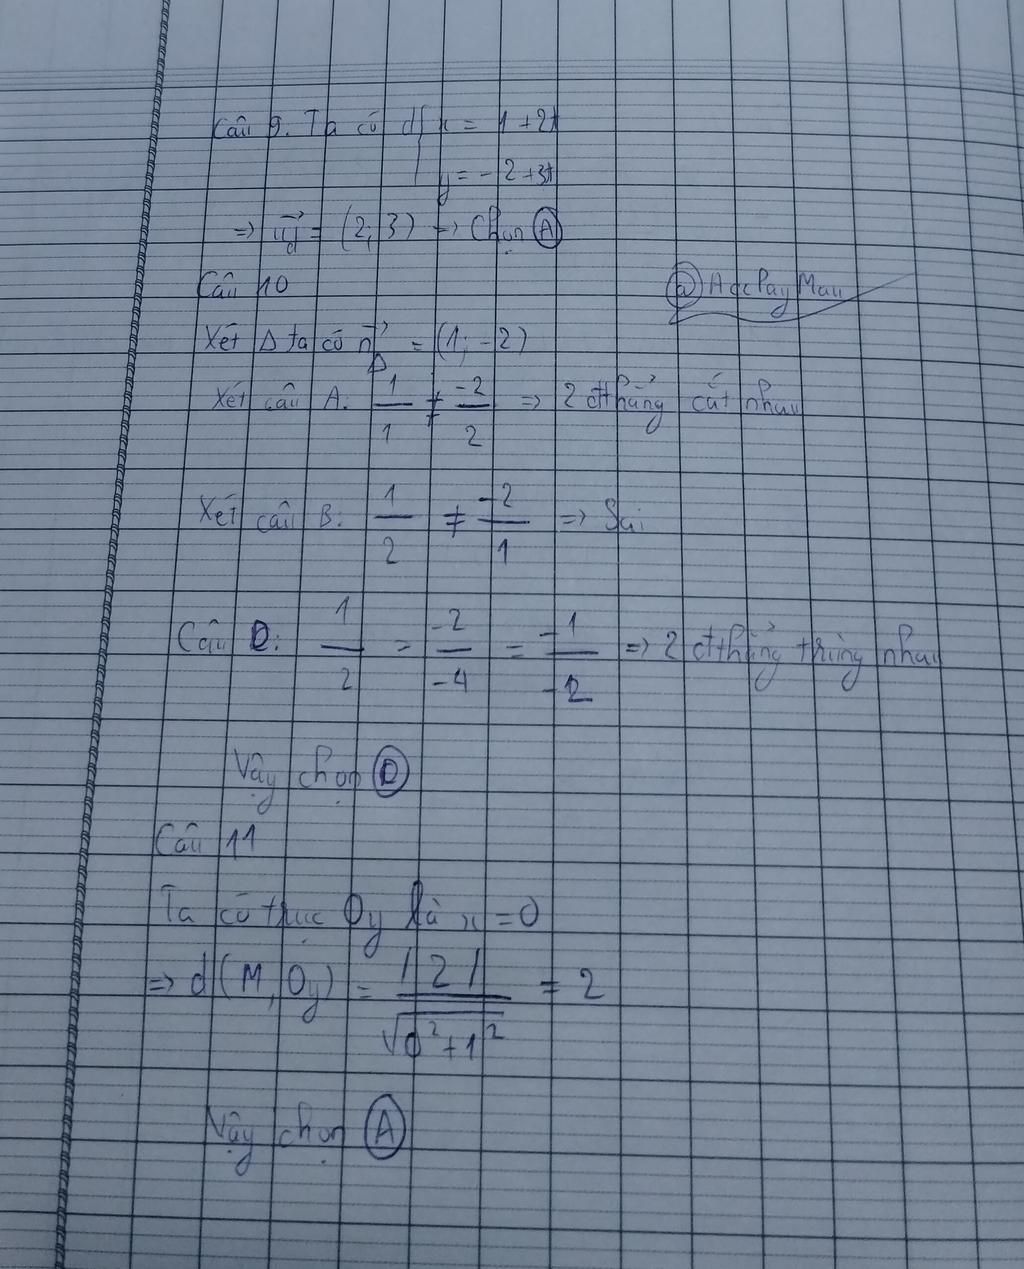 Câu 9. Ta có d{ x = 1 + 2t
y = -2 + 3t
=> u⃗d = (2; 3) => Chọn Ⓐ
Câu 10
@ AdcPayMau
Xét Δ ta có n⃗Δ = (1; -2)
Xét câu A: 1/1 ≠ -2/2 => 2 đthẳng cắt nhau
Xét câu B: 1/2 ≠ -2/1 => Sai
Câu D: 1/2 = -2/-4 = -1/-2 => 2 đthẳng trùng nhau
Vậy chọn Ⓓ
Câu 11
Ta có trục Oy là x = 0
=> d(M, Oy) = |2|/√0²+1² = 2
Vậy chọn Ⓐ